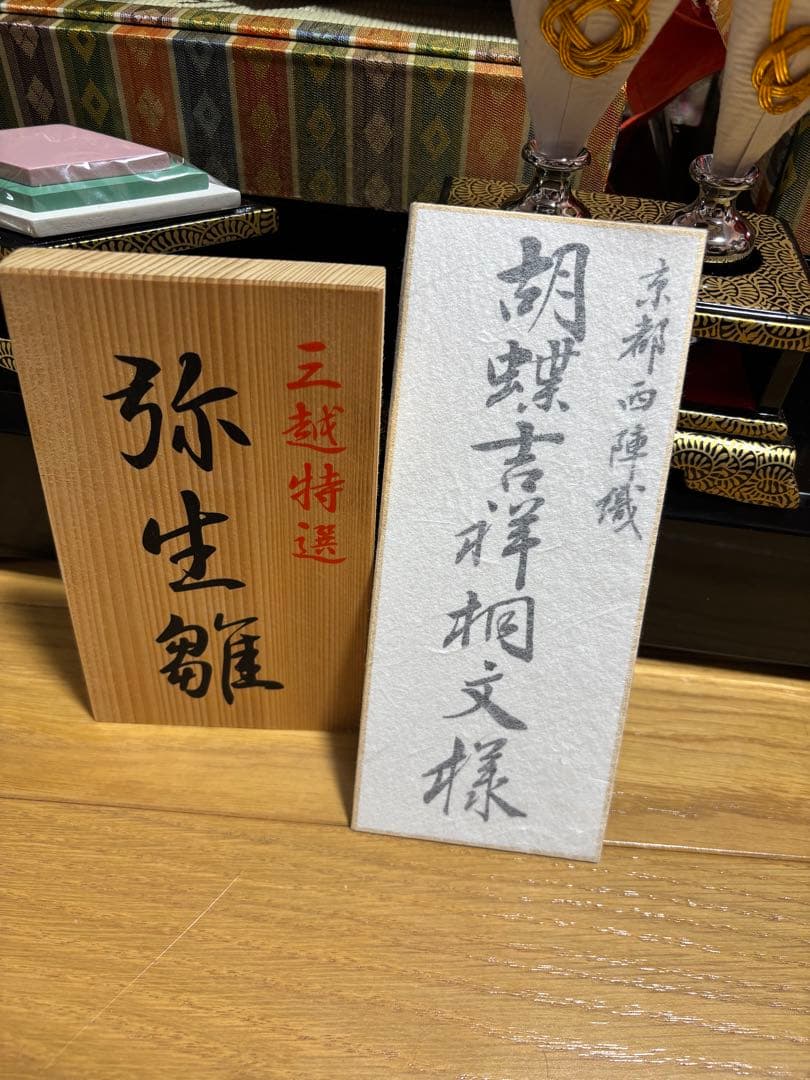 三越特選
弥生雛
京都西陣織
胡蝶吉祥桐文様